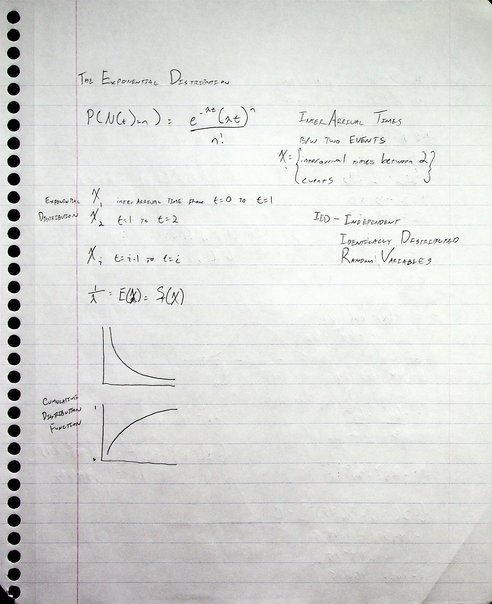 The Exponential Distribution
P(N(t)=n) = e^-λt (λt)^n / n!
Inter Arrival Times
B/w Two Events
X = {interarrival times between 2
events}
Exponential
Distribution
X1 inter arrival time from t=0 to t=1
X2 t=1 to t=2
Xi t=i-1 to t=i
IID - Independent
Identically Distributed
Random Variables
1/λ = E(X) = (X)
Cumulative
Distribution
Function
1